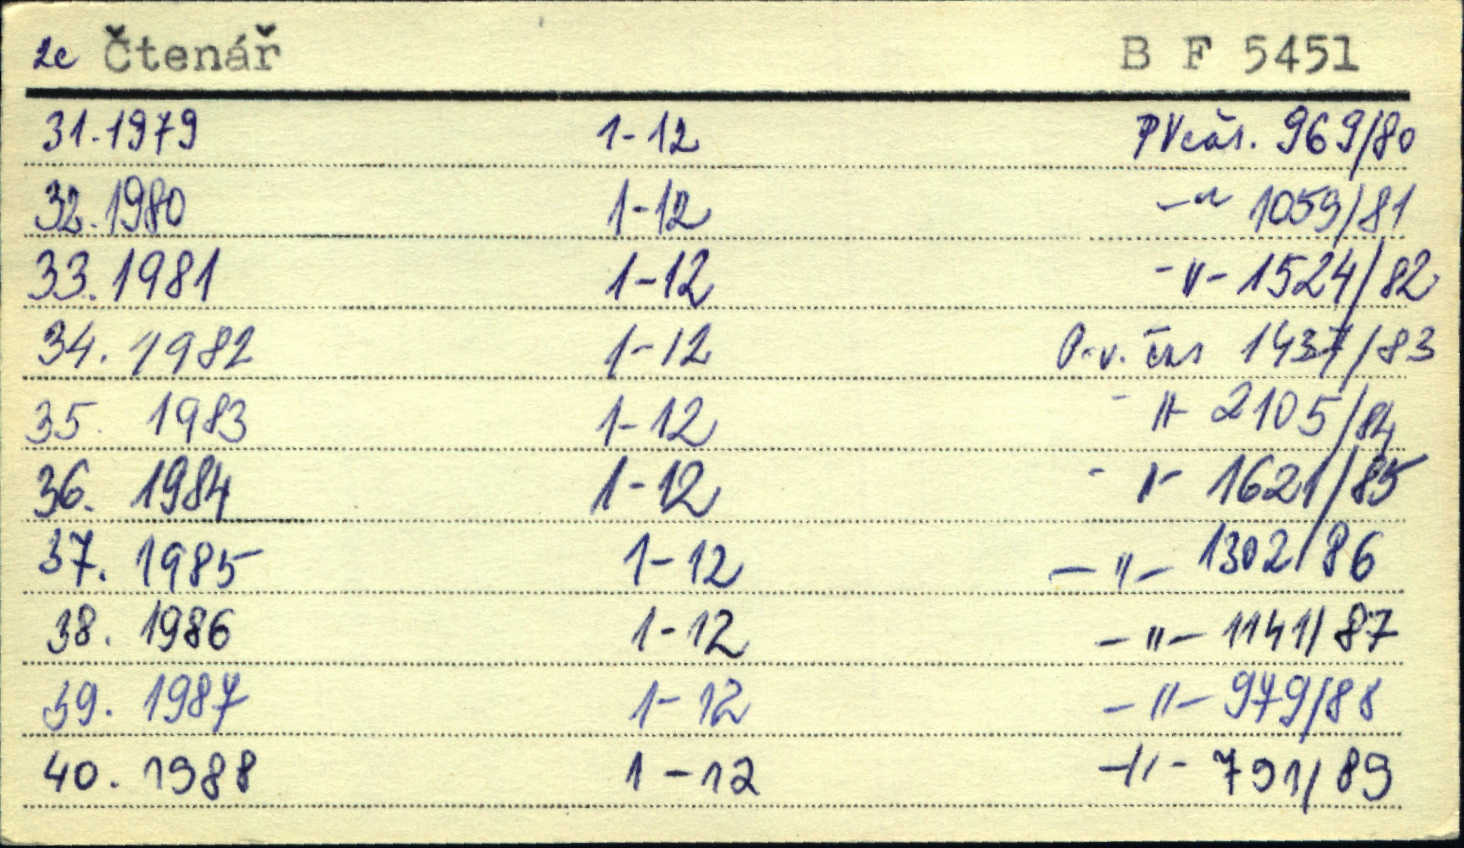 2c Čtenář B F 5451
31. 1979 1-12 PV čás. 969/80
32. 1980 1-12 -"- 1059/81
33. 1981 1-12 -"- 1524/82
34. 1982 1-12 P.v. čas 1437/83
35. 1983 1-12 -"- 2105/84
36. 1984 1-12 -"- 1621/85
37. 1985 1-12 -"- 1302/86
38. 1986 1-12 -"- 1141/87
39. 1987 1-12 -"- 979/88
40. 1988 1-12 -"- 791/89